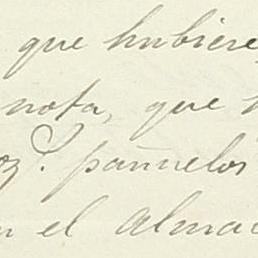 que hubiere
nota, que
oz? pañuelos
en el Almac